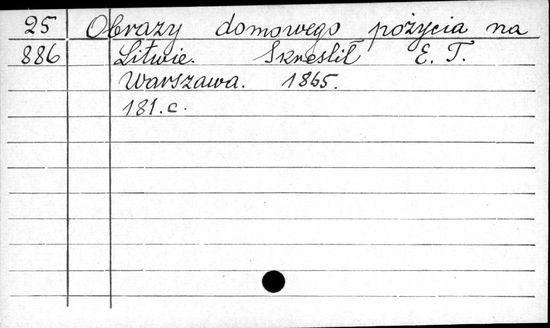 25 Obrazy domowego pożycia na
886 Litwie. Skreślił E. T.
Warszawa. 1865.
181.c.